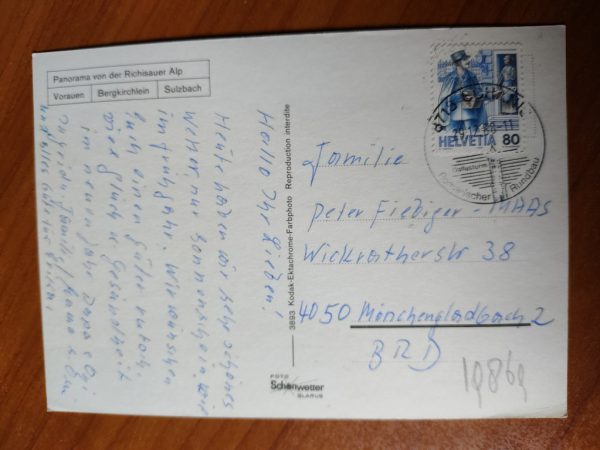 Panorama von der Richisauer Alp
Vorauen Bergkirchlein Sulzbach
Hallo Ihr Lieben!
Heute haben wir sehr schönes
Wetter nur Sonnenschein, wie
im Frühjahr. Wir wünschen
Euch einen guten Rutsch
viel Glück u. Gesundheit
im neuen Jahr Papa u. Opi
3893 Kodak-Ektachrome-Farbphoto Reproduction interdite
FOTO
Schönwetter
GLARUS
HELVETIA 80
Romanischer Rundbau
Familie
Peter Fiediger-MAAS
Wickratherstr 38
4050 Mönchengladbach 2
BRD
19869